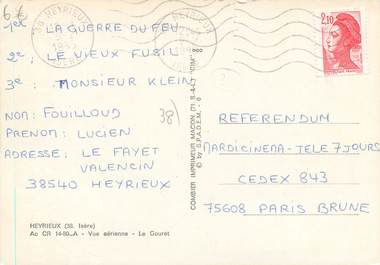 6€
1er LA GUERRE DU FEU
2e; LE VIEUX FUSIL
3e : MONSIEUR KLEIN
NOM: FOUILLOUD
PRENOM: LUCIEN
ADRESSE: LE FAYET
VALENCIN
38540 HEYRIEUX
38)
HEYRIEUX (38. Isère)
Ao CR 14-80-A - Vue aérienne - Le Gouret
COMBIER IMPRIMEUR MACON (71. S.-&-L.) "CIM"
© by S.P.A.D.E.M.
38 HEYRIEUX
2,10
REFERENDUM
MARDICINEMA - TELE 7 JOURS
CEDEX 843
75608 PARIS BRUNE